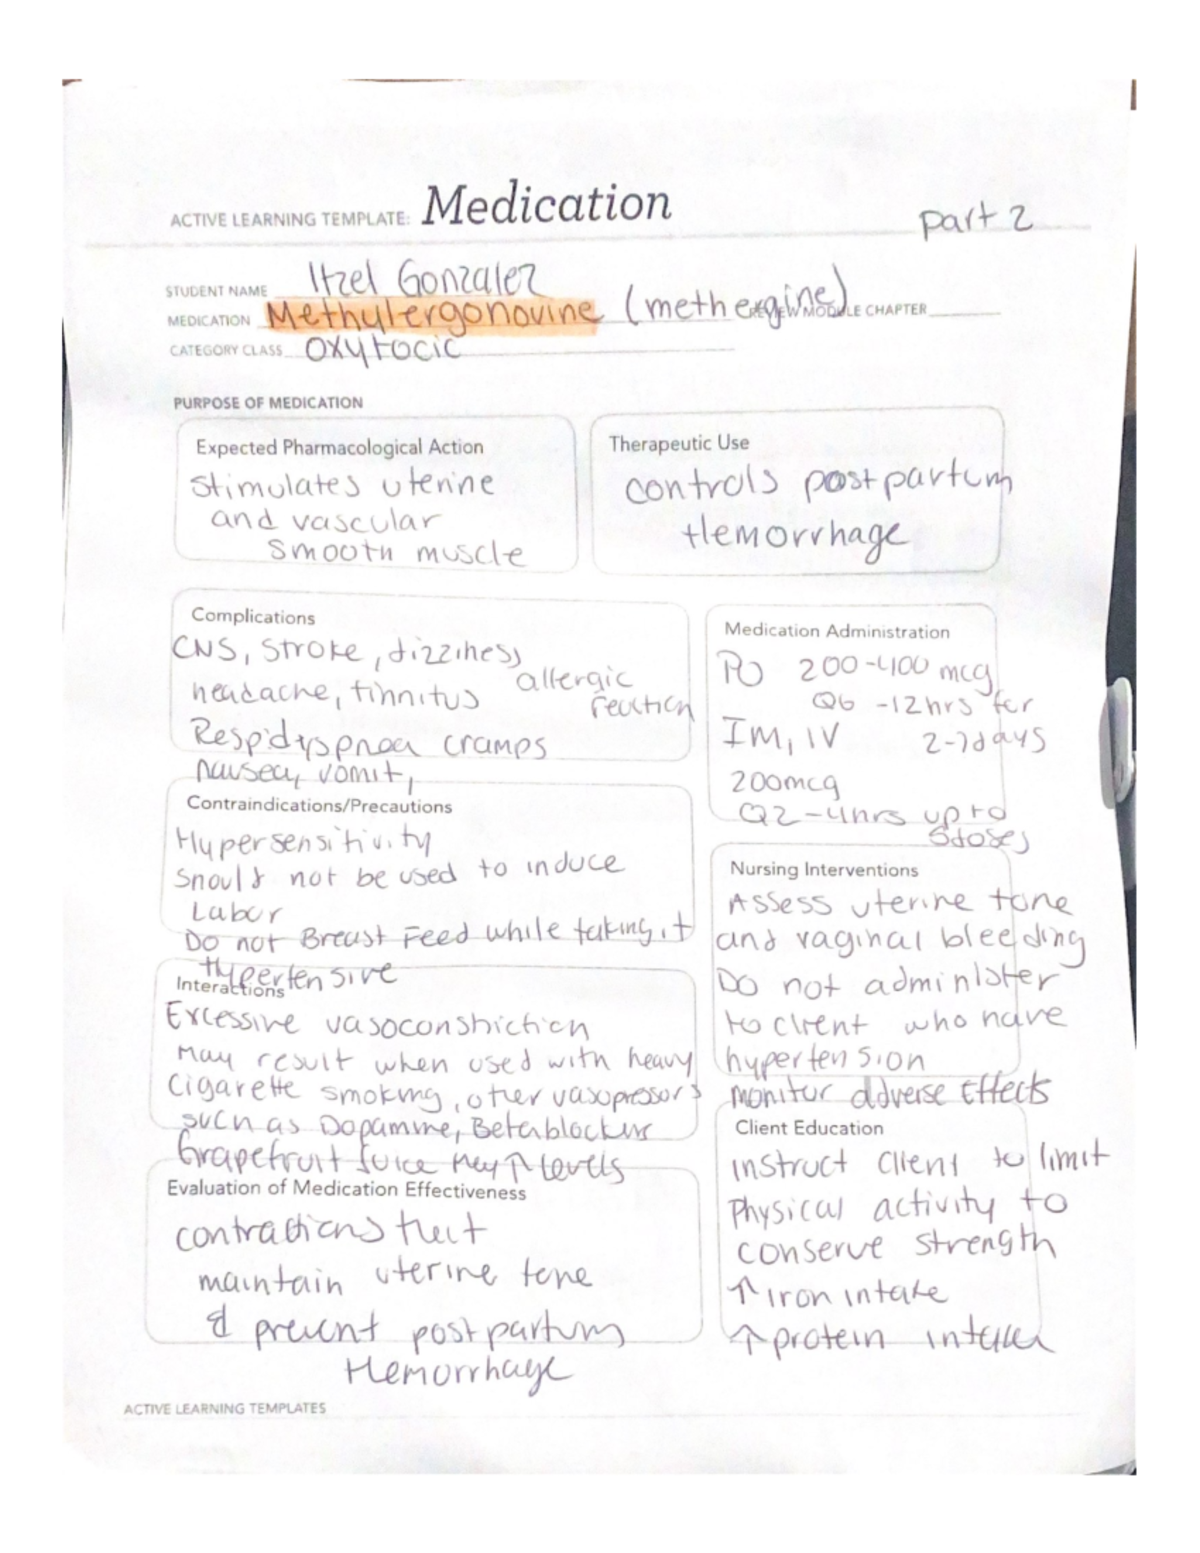 ACTIVE LEARNING TEMPLATE: Medication
part 2
STUDENT NAME Itzel Gonzalez
MEDICATION Methylergonovine (methergine) REVIEW MODULE CHAPTER
CATEGORY CLASS Oxytocic
PURPOSE OF MEDICATION
Expected Pharmacological Action
stimulates uterine
and vascular
smooth muscle
Therapeutic Use
controls postpartum
Hemorrhage
Complications
CNS, stroke, dizziness
headache, tinnitus
allergic
reaction
Resp: dyspnea cramps
nausea, vomit,
Medication Administration
PO 200-400 mcg
Q6 -12hrs for
2-7days
IM, IV
200mcg
Q2-4hrs up to
5doses
Contraindications/Precautions
Hypersensitivity
Should not be used to induce
Labor
Do not Breast Feed while taking it
Hypertensive
Nursing Interventions
Assess uterine tone
and vaginal bleeding
Do not administer
to client who have
hypertension
monitor adverse Effects
Interactions
Excessive vasoconstriction
May result when used with heavy
cigarette smoking, other vasopressors
such as Dopamine, Betablockers
Grapefruit Juice may ↑ levels
Client Education
instruct client to limit
Physical activity to
conserve strength
↑ iron intake
↑ protein intake
Evaluation of Medication Effectiveness
contractions that
maintain uterine tone
& prevent postpartum
Hemorrhage
ACTIVE LEARNING TEMPLATES